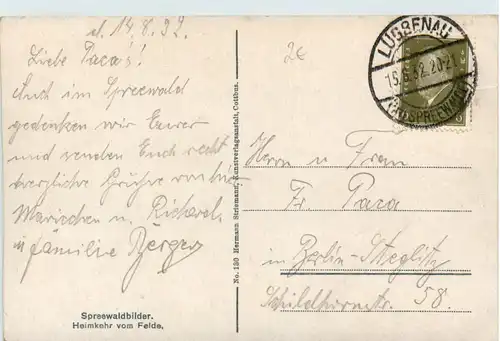 d. 14.8.32.
Liebe Para's!
Auch im Spreewald
gedenken wir Eurer
und senden Euch recht
herzliche Grüße von
Mariechen u. Richard
Familie Berger
Spreewaldbilder.
Heimkehr vom Felde.
No. 130 Hermann Steinmann, Kunstverlagsanstalt, Cottbus.
2€
LÜBBENAU
15.8.32.20-21
(SPREEWALD)
Herrn u Frau
Fr. Para
in Berlin-Steglitz
Schildhornstr. 58.